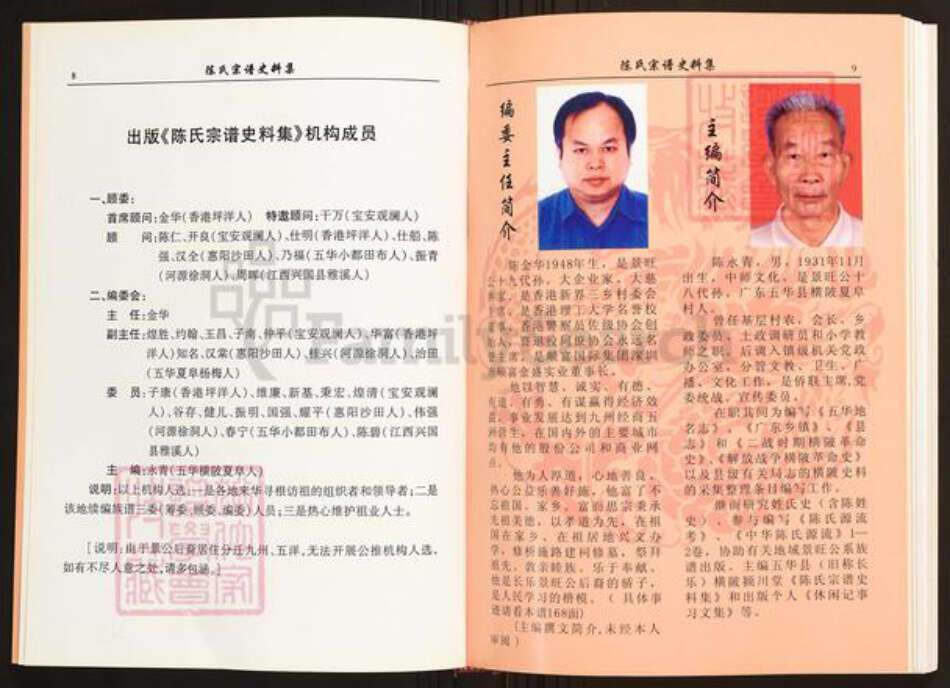 8
陈氏宗谱史料集
出版《陈氏宗谱史料集》机构成员
一、顾委:
首席顾问:金华(香港坪洋人) 特邀顾问:干万(宝安观澜人)
顾 问:陈仁、开良(宝安观澜人)、仕明(香港坪洋人)、仕船、陈
强、汉全(惠阳沙田人)、乃福(五华小都田布人)、振青
(河源徐洞人)、周晖(江西兴国县雅溪人)
二、编委会:
主 任:金华
副主任:煌胜、约翰、王昌、子南、仲平(宝安观澜人)、华富(香港坪
洋人)知名、汉棠(惠阳沙田人)、桂兴(河源徐洞人)、治田
(五华夏阜杨梅人)
委 员:子康(香港坪洋人)、维廉、新基、秉宏、煌清(宝安观澜
人)、谷存、健儿、振明、国强、耀平(惠阳沙田人)、伟强
(河源徐洞人)、春宁(五华小都田布人)、陈碧(江西兴国
县雅溪人)
主 编:永青(五华横陂夏阜人)
说明:以上机构人选:一是各地来华寻根访祖的组织者和领导者;二是
该地续编族谱三委(筹委、顾委、编委)人员;三是热心维护祖业人士。
[说明:由于景公后裔居住分迁九州、五洋,无法开展公推机构人选,
如有不尽人意之处,请多包涵。]
陈氏宗谱史料集
9
编委主任简介
陈金华1948年生,是景旺
公十九代孙。大企业家、大慈
善家,是香港新界三乡村委会
主席,是香港理工大学名誉校
董事、香港警察员佐级协会创
办人、晋退役同僚协会永远名
誉主席,是顺富国际集团深圳
市顺富金盛实业董事长。
他以智慧、诚实、有德、
有道、有勇、有谋赢得经济效
益,事业发展达到九州经商五
洲营生,在国内外的主要城市
均有他的股份公司和商业网
点。
他为人厚道,心地善良。
热心公益乐善好施,他富了不
忘祖国、家乡、富而思宗秉承
先祖美德,以孝道为先,在祖
国在家乡、在祖居地兴文办
学,修桥施路建祠修墓,祭拜
祖先,敦亲睦族、乐于奉献。
他是长乐景旺公后裔的骄子,
是人民学习的楷模。(具体事
迹请看本谱168面)
[主编撰文简介,未经本人
审阅)
主编简介
陈永青,男,1931年11月
出生,中师文化,是景旺公十
八代孙,广东五华县横陂夏阜
村人。
曾任基层村农,会长、乡
政委员、土政调研员和小学教
师之职,后调入镇级机关党政
办公室,分管文教、卫生、广
播、文化工作,是侨联主席,党
委统战、宣传委员。
在职其间为编写《五华地
名志》、《广东乡镇》、《县
志》和《二战时期横陂革命
史》、《解放战争横陂革命史》
以及县级有关局志的横陂史料
的采集整理条目编写工作。
继而研究姓氏史(含陈姓
史)、参与编写《陈氏源流
考》、《中华陈氏源流》1—
2卷,协助有关地域景旺公系族
谱出版。主编五华县(旧称长
乐)横陂颍川堂《陈氏宗谱史
料集》和出版个人《休闲记事
习文集》等。